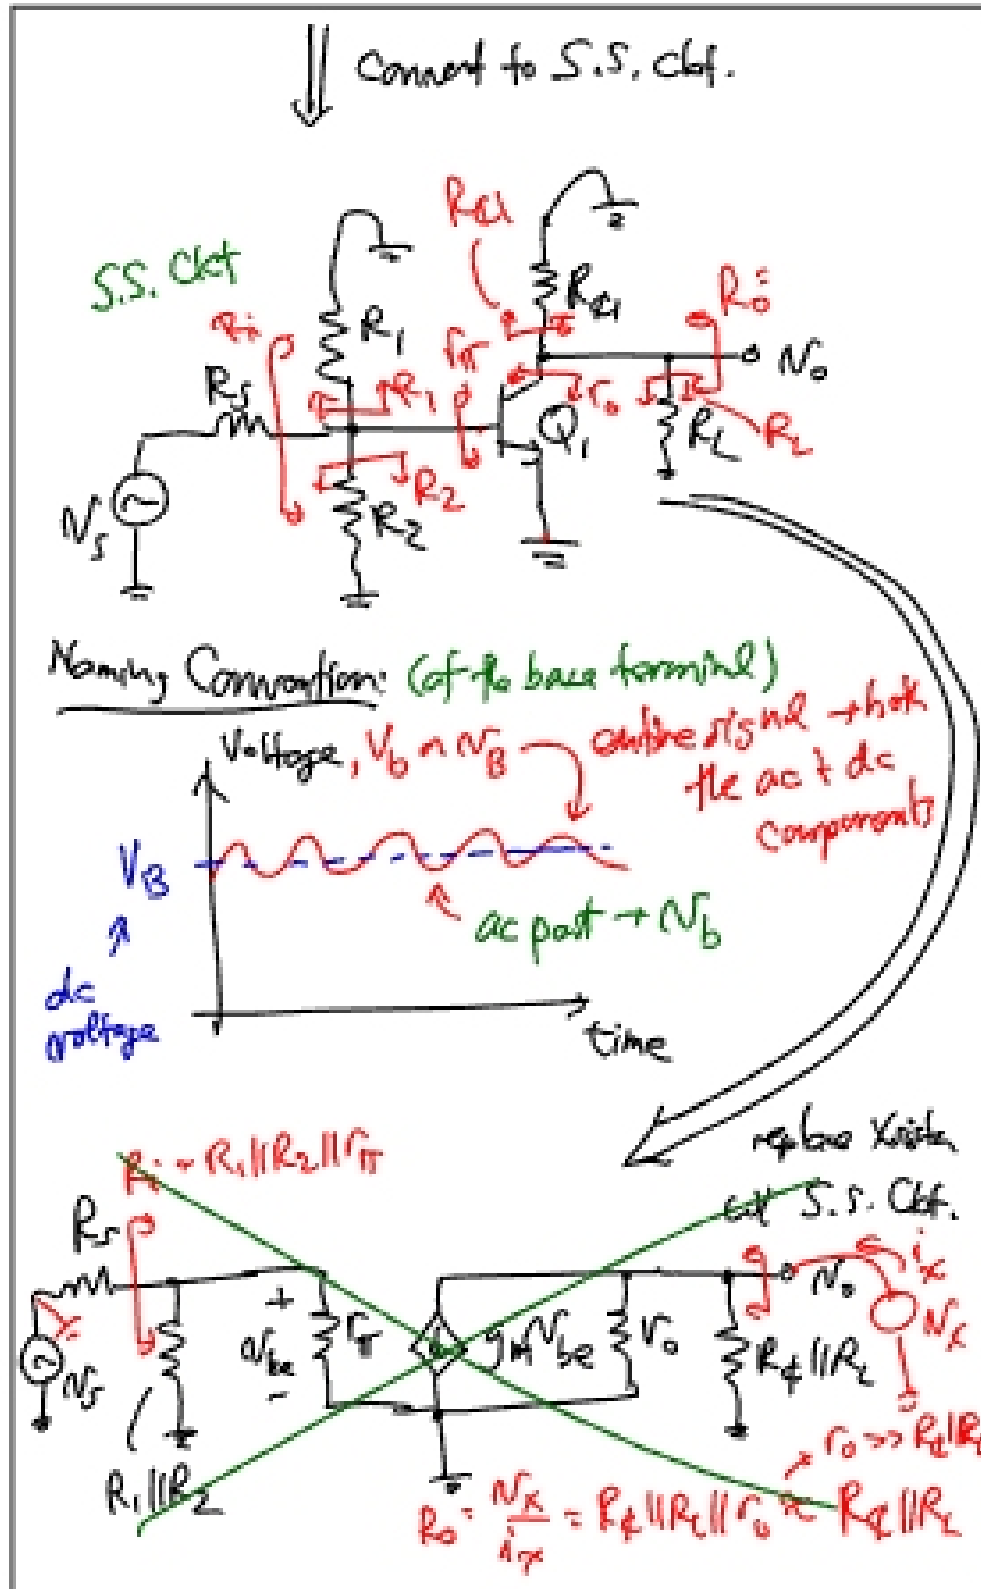 Convert to S.S. Ckt.
S.S. Ckt
Ri
Rs
R1
R1
R2
R2
vs
rπ
Rc1
Rc1
ro
Q1
Ro=
vo
RL
RL
Naming Convention: (at the base terminal)
Voltage, Vb or vB → entire signal → both
the ac + dc
components
VB
dc
voltage
ac part → vb
time
replace Xsistor
w/ S.S. Ckt.
Ri = R1||R2||rπ
Rs
vs
R1||R2
+
vbe
-
rπ
gmvbe
ro
Rc||RL
vo
ix
vx
ro >> Rc||RL
Ro = vx/ix = Rc||RL||ro ≈ Rc||RL